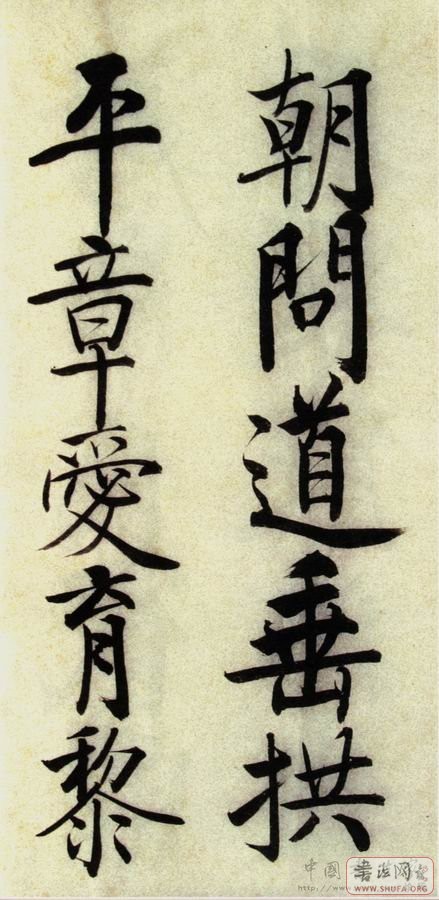 朝問道垂拱
平章愛育黎
中国書法网
http://www.
WWW.SHUFA.ORG